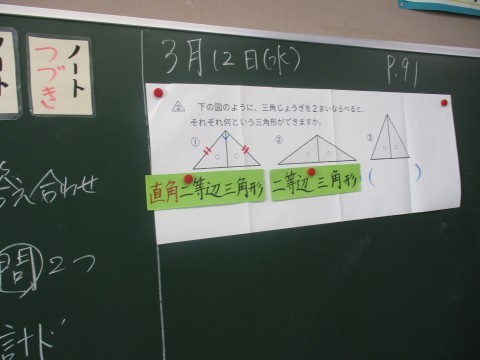 ノート
ノート
つづき
3月12日(水)
P.91
② 下の図のように、三角じょうぎを2まいならべると、
それぞれ何という三角形ができますか。
① ② ③
直角二等辺三角形
二等辺三角形
( )
答え合わせ
問 2つ
計ド